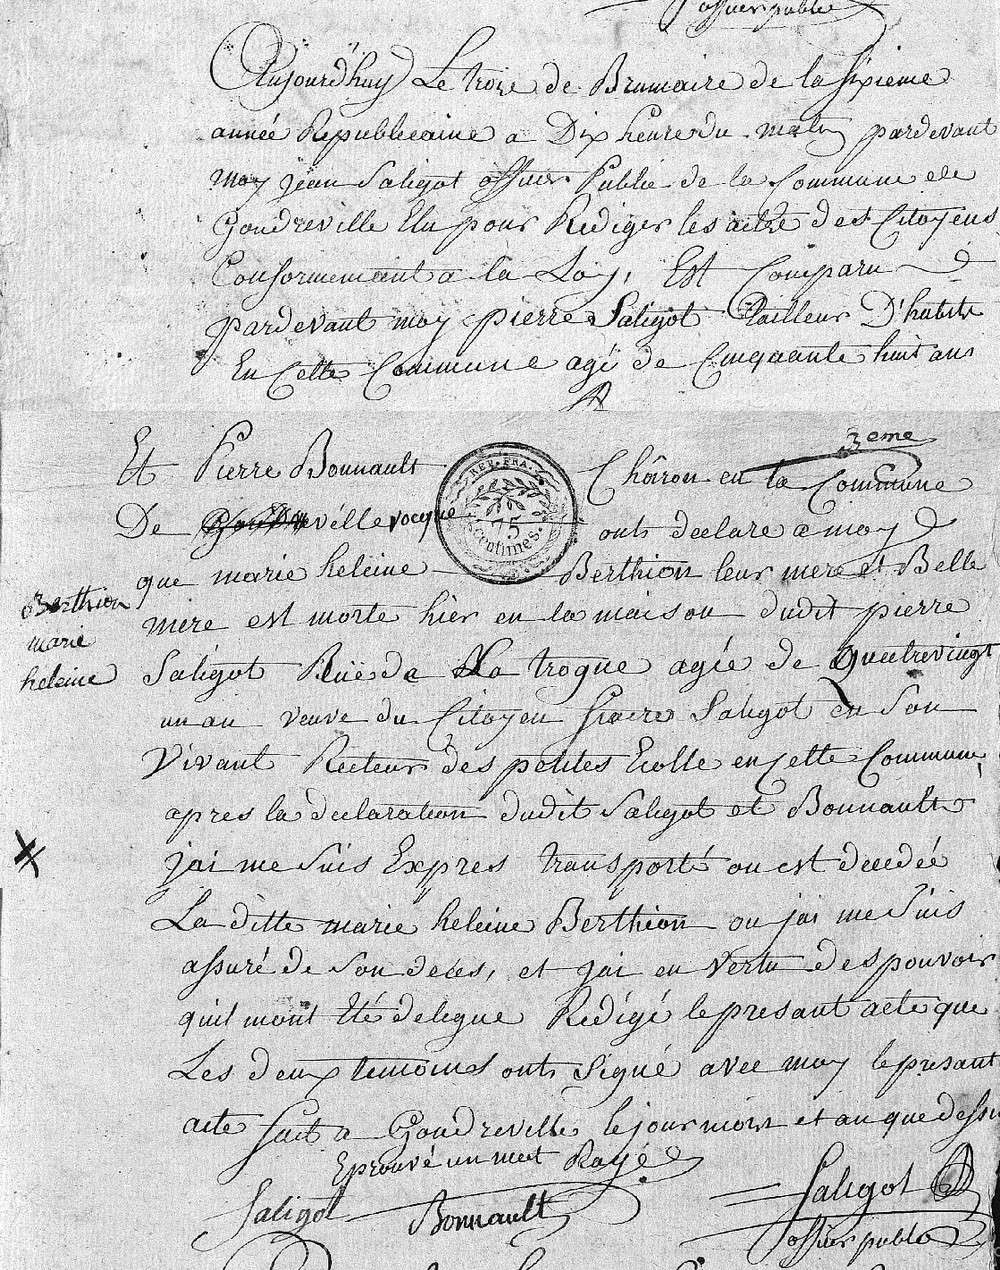 offier public
Aujourdhuy Le troze de Brumaire de la sixieme
année Republicaine a Dix heure du matin pardevant
moy jean Saligot offier Public de la Commune de
Gondreville Elu pour Rediger les actte des Citoyens
Conformemant a la Loy, Est Comparu
pardevant moy pierre Saligot Tailleur D'habits
En Cette Commune agé de Cinquante huit ans
3eme
Et Pierre Bonnault Chāron en la Commune
De ville vocque onts declare a moy
REP. FRA.
75
centimes.
que marie heleine Berthion leur mere et Belle
mere est morte hier en la maison dudit pierre
Berthion
marie
heleine
Saligot Ruë de La troque agée de quatrevingt
un an veuve du Citoyen Saligot en Son
Vivant Recteur des petites Ecolle en Cette Commune
apres la declaration dudit Saligot et Bonnault
jai me Suis Expres transporté ou est decedée
La ditte marie heleine Berthion ou jai me Suis
assuré de Son deces, et jai en vertu des pouvoir
quil mont été delegue Redigé le presant acte que
Les deux temoins onts Signé avec moy le presant
acte fait a Gondreville le jour mois et an que dessu
Eprouvé un mot Rayé
Saligot Bonnault Saligot
offier public